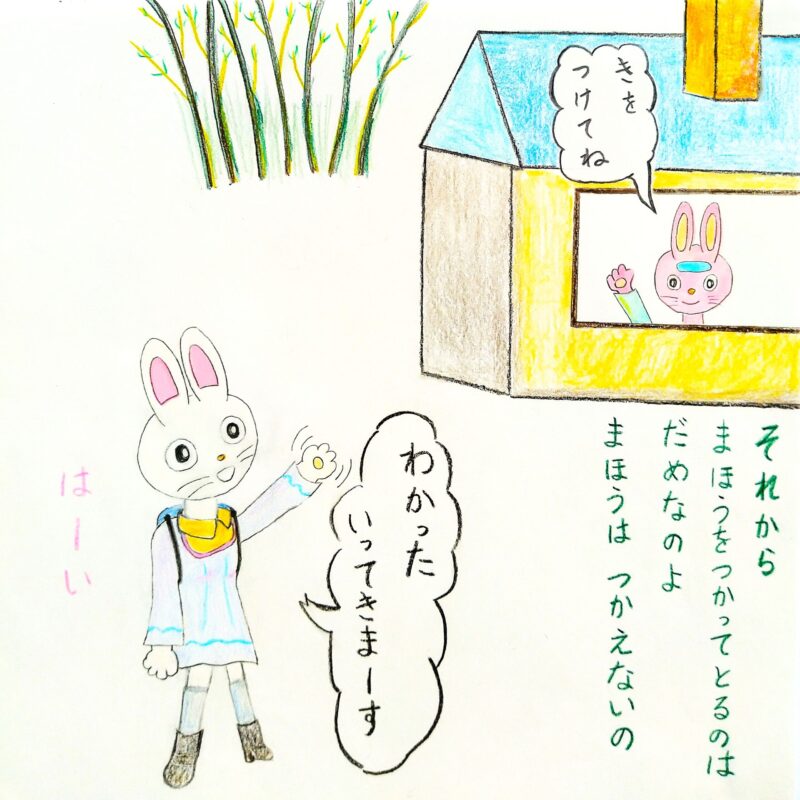 きを
つけてね
それから
まほうをつかってとるのは
だめなのよ
まほうは つかえないの
わかった
いってきまーす
はーい